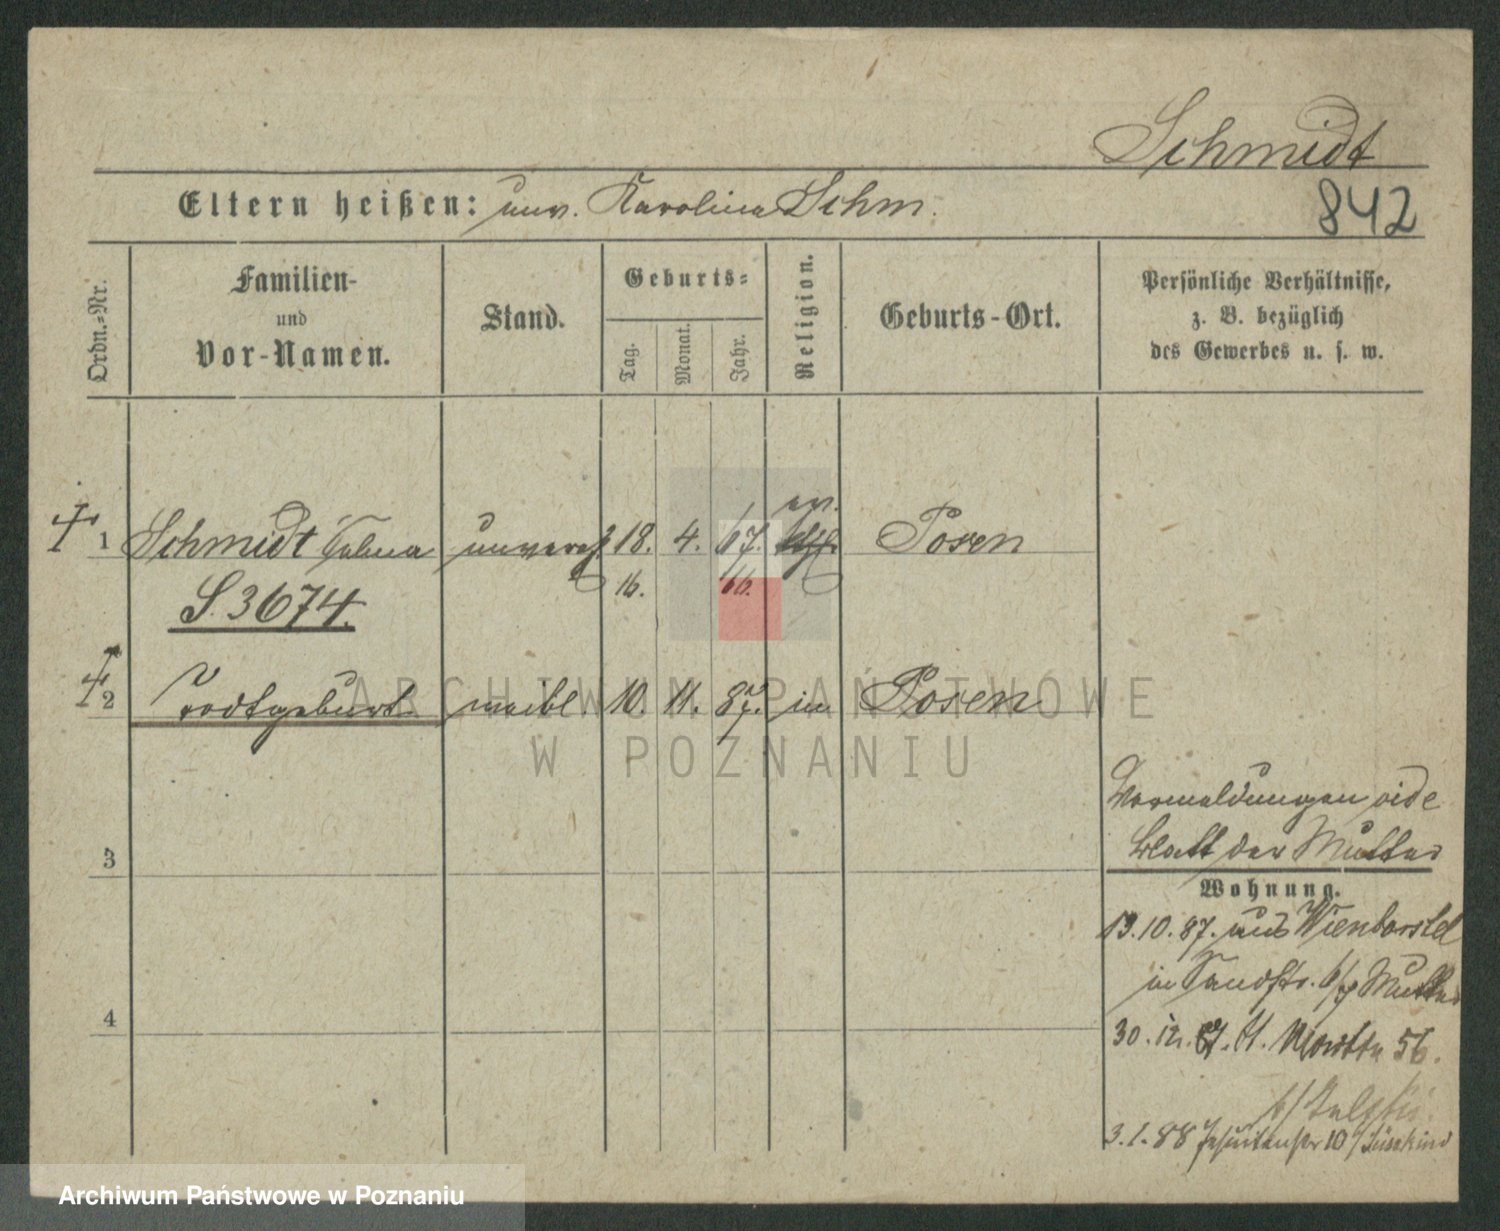 Schmidt
Eltern heißen: unv. Karolina Schm.
842
Ordn.-Nr.
Familien-
und
Vor-Namen.
Stand.
Geburts-
Tag.
Monat.
Jahr.
Religion.
Geburts-Ort.
Persönliche Verhältnisse,
z. B. bezüglich
des Gewerbes u. s. w.
ev.
1 Schmidt unvereh. 18. 4. 67. Posen
16. 66.
S. 3674.
2 Todtgeburt weibl. 10. 11. 87. in Posen
ARCHIWUM PAŃSTWOWE
W POZNANIU
Vormeldungen vide
3 Blatt der Mutter
Wohnung.
13.10.87. aus
in Sandstr. b/ Mutter
4
30. 12. 87. 56.
b/
3.1.88 Jesuitenstr 10 / Süsskind
Archiwum Państwowe w Poznaniu